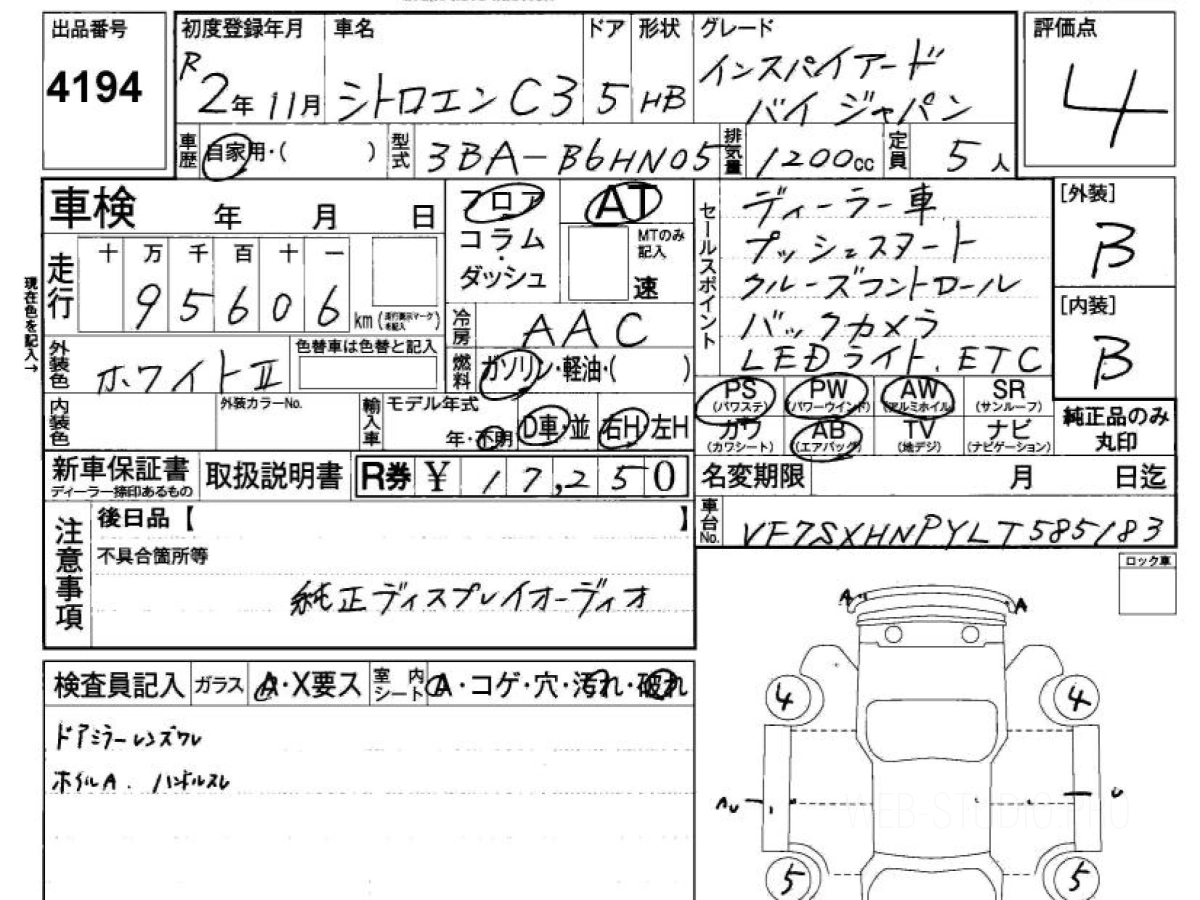 出品番号
4194
初度登録年月 車名 ドア 形状 グレード
R2年11月 シトロエンC3 5 HB インスパイアード
バイ ジャパン
評価点
4
車歴 自家用・( ) 型式 3BA-B6HN05 排気量 1200cc 定員 5人
車検 年 月 日
フロア
コラム
・
ダッシュ
AT
MTのみ
記入
速
セールスポイント
ディーラー車
プッシュスタート
クルーズコントロール
バックカメラ
LEDライト. ETC
[外装]
B
[内装]
B
現在色を記入→
走行 十 万 千 百 十 一
95606 km (走行表示マークを記入)
冷房 AAC
外装色 ホワイトII 色替車は色替と記入
燃料 ガソリン・軽油・( )
PS (パワステ) PW (パワーウインド) AW (アルミホイル) SR (サンルーフ)
カワ (カワシート) AB (エアバッグ) TV (地デジ) ナビ (ナビゲーション)
純正品のみ
丸印
内装色 外装カラーNo. 輸入車 モデル年式
年・不明 D車・並 右H・左H
新車保証書
ディーラー捺印あるもの
取扱説明書 R券 ¥ 17,250
名変期限 月 日迄
車台No. VF7SXHNPYLT585183
注意事項
後日品【 】
不具合箇所等
純正ディスプレイオーディオ
ロック車
検査員記入 ガラス A・X要ス 室内シート A・コゲ・穴・汚れ・破れ
ドアミラーレンズワレ
ホイルA. ハンドルスレ
A A
4 4
AU U
5 5
WEB-STUDIO.PRO